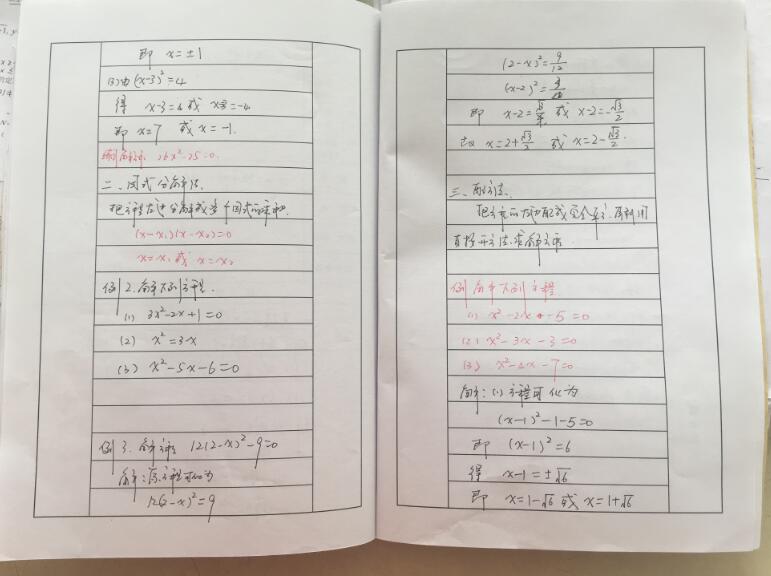 即 x=±1
(3)由 (x-3)²=4
得 x-3=4 或 x-3=-4
即 x=7 或 x=-1.
解方程 16x²-25=0.
二、因式分解法.
把方程左边分解成若干因式的乘积.
(x-x₁)(x-x₂)=0
x=x₁ 或 x=x₂
例2. 解下列方程.
(1) 3x²-2x+1=0
(2) x²=3x
(3) x²-5x-6=0
例3. 解方程 12(2-x)²-9=0
解:原方程可化为
12(2-x)²=9
(2-x)²=9/12
(x-2)²=
即 x-2= 或 x-2=-√3/2
故 x=2+√3/2 或 x=2-√3/2.
三、配方法.
把方程的左边配成完全平方,再利用
直接开方法,求解方程.
例 解下列方程
(1) x²-2x-5=0
(2) x²-3x-3=0
(3) x²-2x-7=0
解:(1)方程可化为
(x-1)²-1-5=0
即 (x-1)²=6
得 x-1=±√6
即 x=1-√6 或 x=1+√6